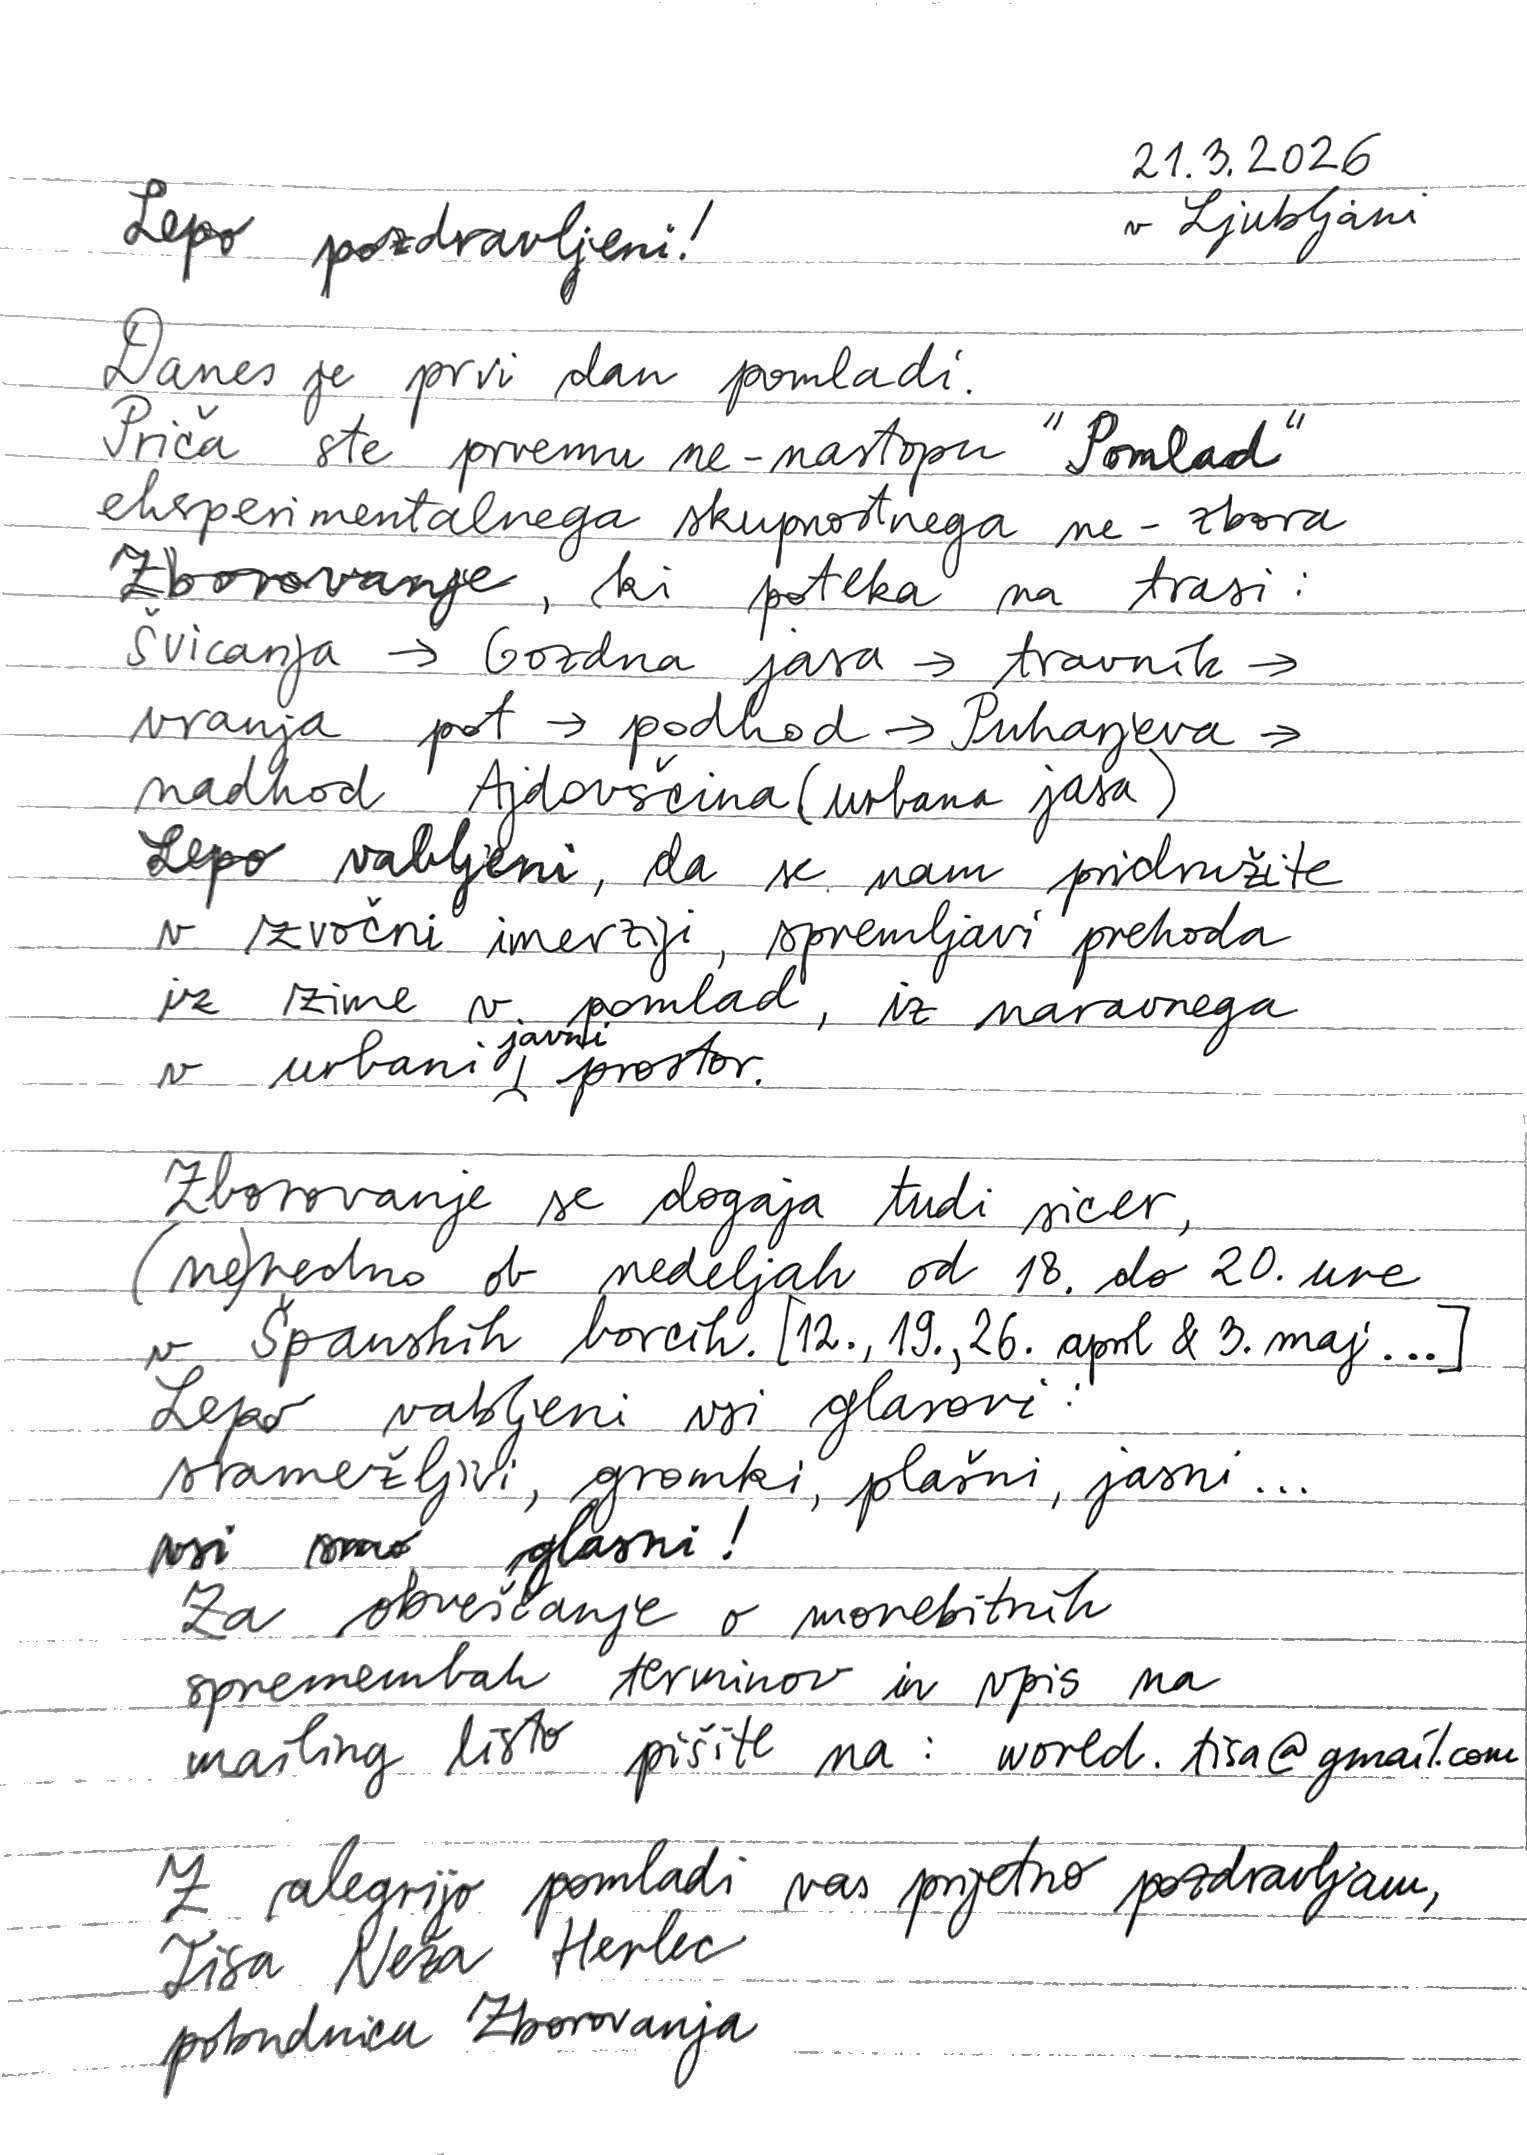 21.3.2026
v Ljubljani
Lepo pozdravljeni!
Danes je prvi dan pomladi.
Priča ste prvemu ne-nastopu "Pomlad"
eksperimentalnega skupnostnega ne-zbora
Zborovanje, ki poteka na trasi:
Švicanja → Gozdna jasa → travnik →
vranja pot → podhod → Puharjeva →
nadhod Ajdovščina (urbana jasa)
Lepo vabljeni, da se nam pridružite
v zvočni imerziji, spremljavi prehoda
iz zime v pomlad, iz naravnega
v urbani javni prostor.
Zborovanje se dogaja tudi sicer,
(ne)redno ob nedeljah od 18. do 20. ure
v Španskih borcih. [12., 19., 26. april & 3. maj...]
Lepo vabljeni vsi glasovi:
sramežljivi, gromki, plašni, jasni...
vsi smo glasni!
Za obveščanje o morebitnih
spremembah terminov in vpis na
mailing listo pišite na: world.tisa@gmail.com
Z alegrijo pomladi vas prijetno pozdravljam,
Tisa Neža Herlec
pobudnica Zborovanja